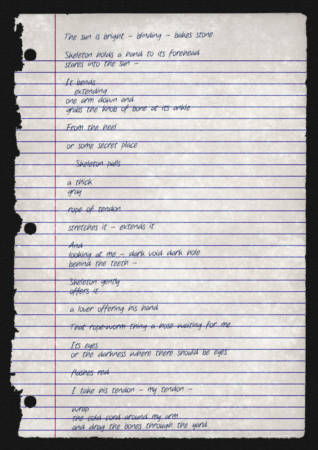 The sun is bright - blinding - bakes stone
Skeleton holds a hand to its forehead
stares into the sun -
It bends
extending
one arm down and
grabs the knob of bone at its ankle
From the heel
or some secret place
Skeleton pulls
a thick
gray
rope of tendon
stretches it - extends it
And
looking at me - dark void dark hole
behind the teeth -
Skeleton gently
offers it
a lover offering his hand
That rope-worm thing a nose waiting for me
Its eyes
or the darkness where there should be eyes
flashes red
I take his tendon - my tendon -
wrap
the cold cord around my arm
and drag the bones through the yard